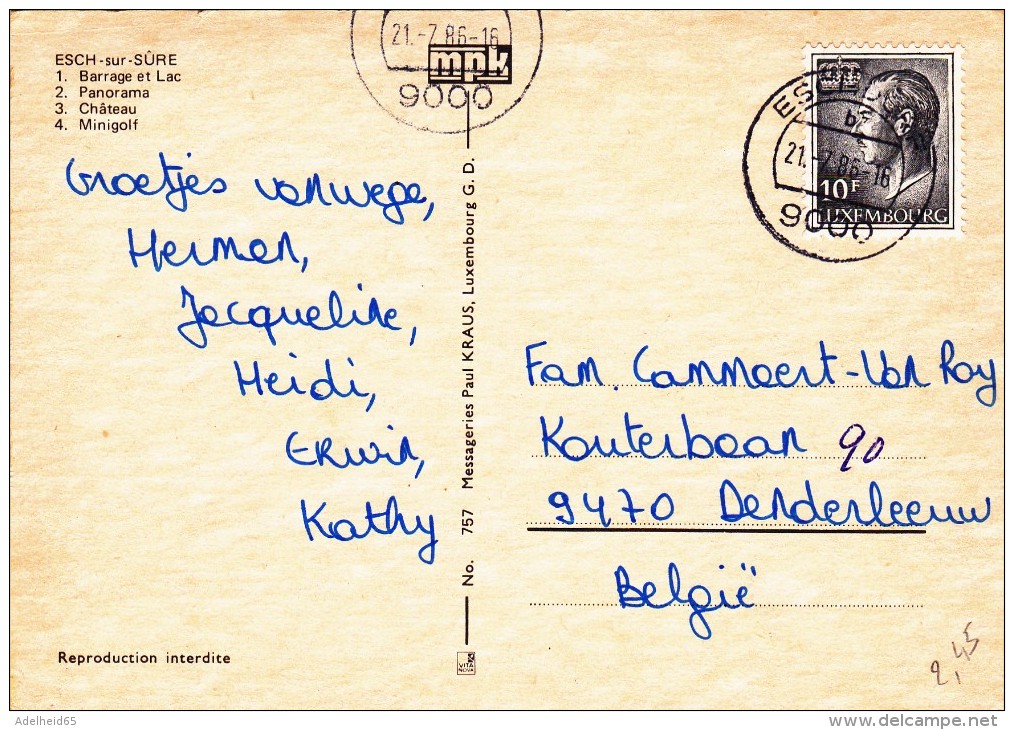 ESCH-sur-SÛRE
1. Barrage et Lac
2. Panorama
3. Château
4. Minigolf
21.-7.86-16
9000
mpk
Groetjes vanwege,
Herman,
Jacqueline,
Heidi,
Erwin,
Kathy
Reproduction interdite
No. 757 Messageries Paul KRAUS, Luxembourg G. D.
VITA NOVA
21.-7.86-16
9000
10F
LUXEMBOURG
Fam. Cammaert-Van Roy
Kouterbaan 90
9470 Denderleeuw
België
2,45
Adelheid65
www.delcampe.net